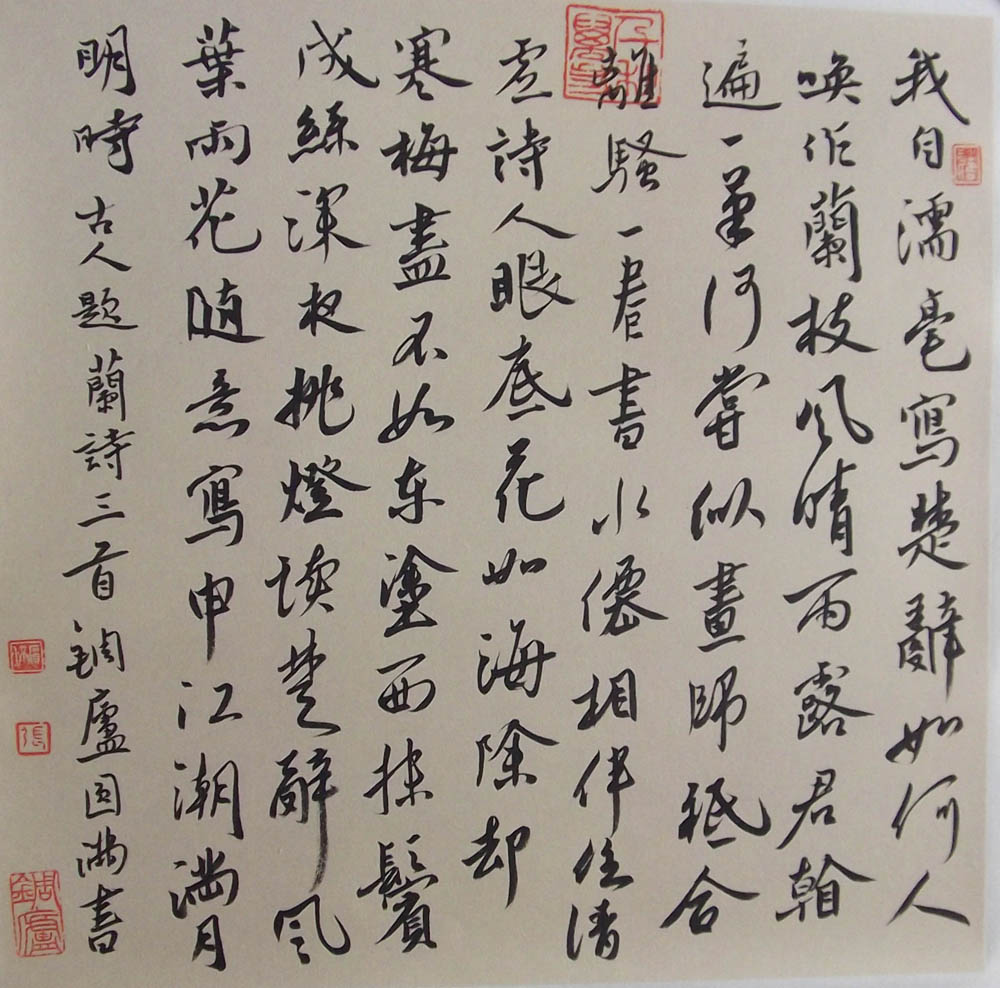 我自濡毫寫楚辭如何人
喚作蘭枝風晴雨露君翰
遍一筆何嘗似畫師祗合
離騷一卷書水僊相伴住清
虛詩人眼底花如海除却
寒梅盡不如東塗西抹鬢
成絲深夜挑燈讀楚辭風
葉雨花隨意寫申江潮滿月
明時 古人題蘭詩三首 錭廬圓滿書
張
錭廬